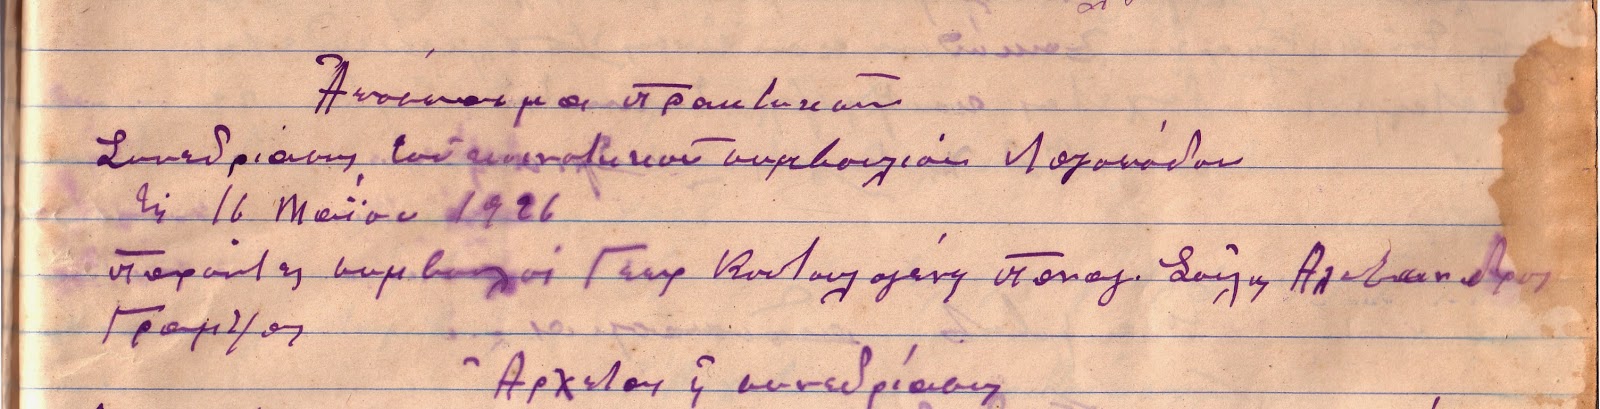 Ἀπόσπασμα πρακτικῶν
Συνεδριάσης τοῦ κοινοτικοῦ συμβουλίου Λαγοπόδου
τῇ 16 Μαΐου 1926
παρόντες συμβουλοι Γεωρ Κοντογένη παναγ. Σούλη Αλεξανδρος
Γραμψας
Ἀρχεται ἡ συνεδρίασης